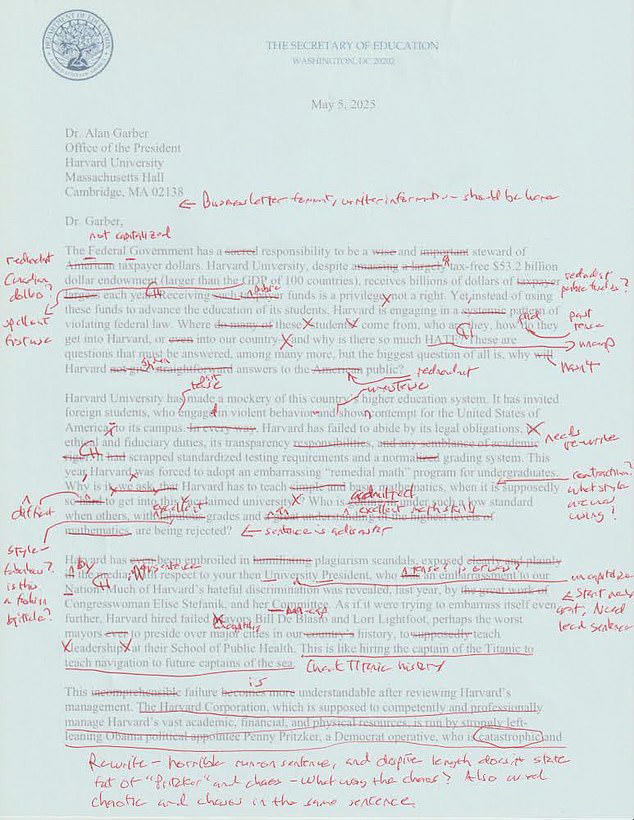 THE SECRETARY OF EDUCATION
WASHINGTON, DC 20202
May 5, 2025
Dr. Alan Garber
Office of the President
Harvard University
Massachusetts Hall
Cambridge, MA 02138
← Business letter format, writer information – should be here
Dr. Garber,
not capitalized
The Federal Government has a sacred responsibility to be a wise and important steward of
American taxpayer dollars. Harvard University, despite amassing a largely tax-free $53.2 billion
dollar endowment (larger than the GDP of 100 countries), receives billions of dollars of taxpayer
largess each year. Receiving such taxpayer funds is a privilege, not a right. Yet instead of using
these funds to advance the education of its students, Harvard is engaging in a systemic pattern of
violating federal law. Where do many of these students come from, who are they, how do they
get into Harvard, or even into our country and why is there so much HATE? These are
questions that must be answered, among many more, but the biggest question of all is, why will
Harvard not give straightforward answers to the American public?
redundant
Canadian
dollar?
spell out
first use
redundant
past
tense
won't
redundant
Harvard University has made a mockery of this country's higher education system. It has invited
foreign students, who engage in violent behavior and show contempt for the United States of
America, to its campus. In every way, Harvard has failed to abide by its legal obligations, its
ethical and fiduciary duties, its transparency responsibilities, and any semblance of academic
rigor. It had scrapped standardized testing requirements and a normalized grading system. This
year Harvard was forced to adopt an embarrassing “remedial math” program for undergraduates.
Why is it, we ask, that Harvard has to teach simple and basic mathematics, when it is supposedly
so hard to get into this acclaimed university? Who is getting in under such a low standard
when others, with fabulous grades and a great understanding of the highest levels of
mathematics, are being rejected?
← sentence is a disaster
needs
rewrite
contraction?
what style
are we
using!
admitted
excellent
style –
fabulous?
is this
a fashion
Harvard has even been embroiled in humiliating plagiarism scandals, exposed clearly and plainly
in the media, with respect to your then University President, who was an embarrassment to our
Nation. Much of Harvard's hateful discrimination was revealed, last year, by the great work of
Congresswoman Elise Stefanik, and her Committee. As if it were trying to embarrass itself even
further, Harvard hired failed Mayors Bill De Blasio and Lori Lightfoot, perhaps the worst
mayors ever to preside over major cities in our country's history, to supposedly teach
“leadership” at their School of Public Health. This is like hiring the captain of the Titanic to
teach navigation to future captains of the sea.
Check Titanic history
is
This incomprehensible failure becomes more understandable after reviewing Harvard's
management. The Harvard Corporation, which is supposed to competently and professionally
manage Harvard's vast academic, financial, and physical resources, is run by strongly left-
leaning Obama political appointee Penny Pritzker, a Democrat operative, who is catastrophic and
Rewrite – horrible run-on sentence, and despite length doesn't state
of “Pritzker” and chaos – What was the chaos? Also avoid
chaotic and chaos in the same sentence.